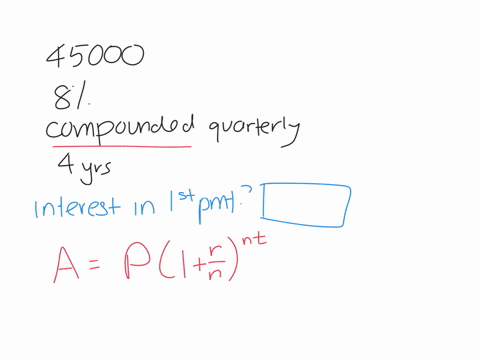 45000
8%
compounded quarterly
4 yrs
interest in 1st pmt?
A = P(1+r/n)^nt